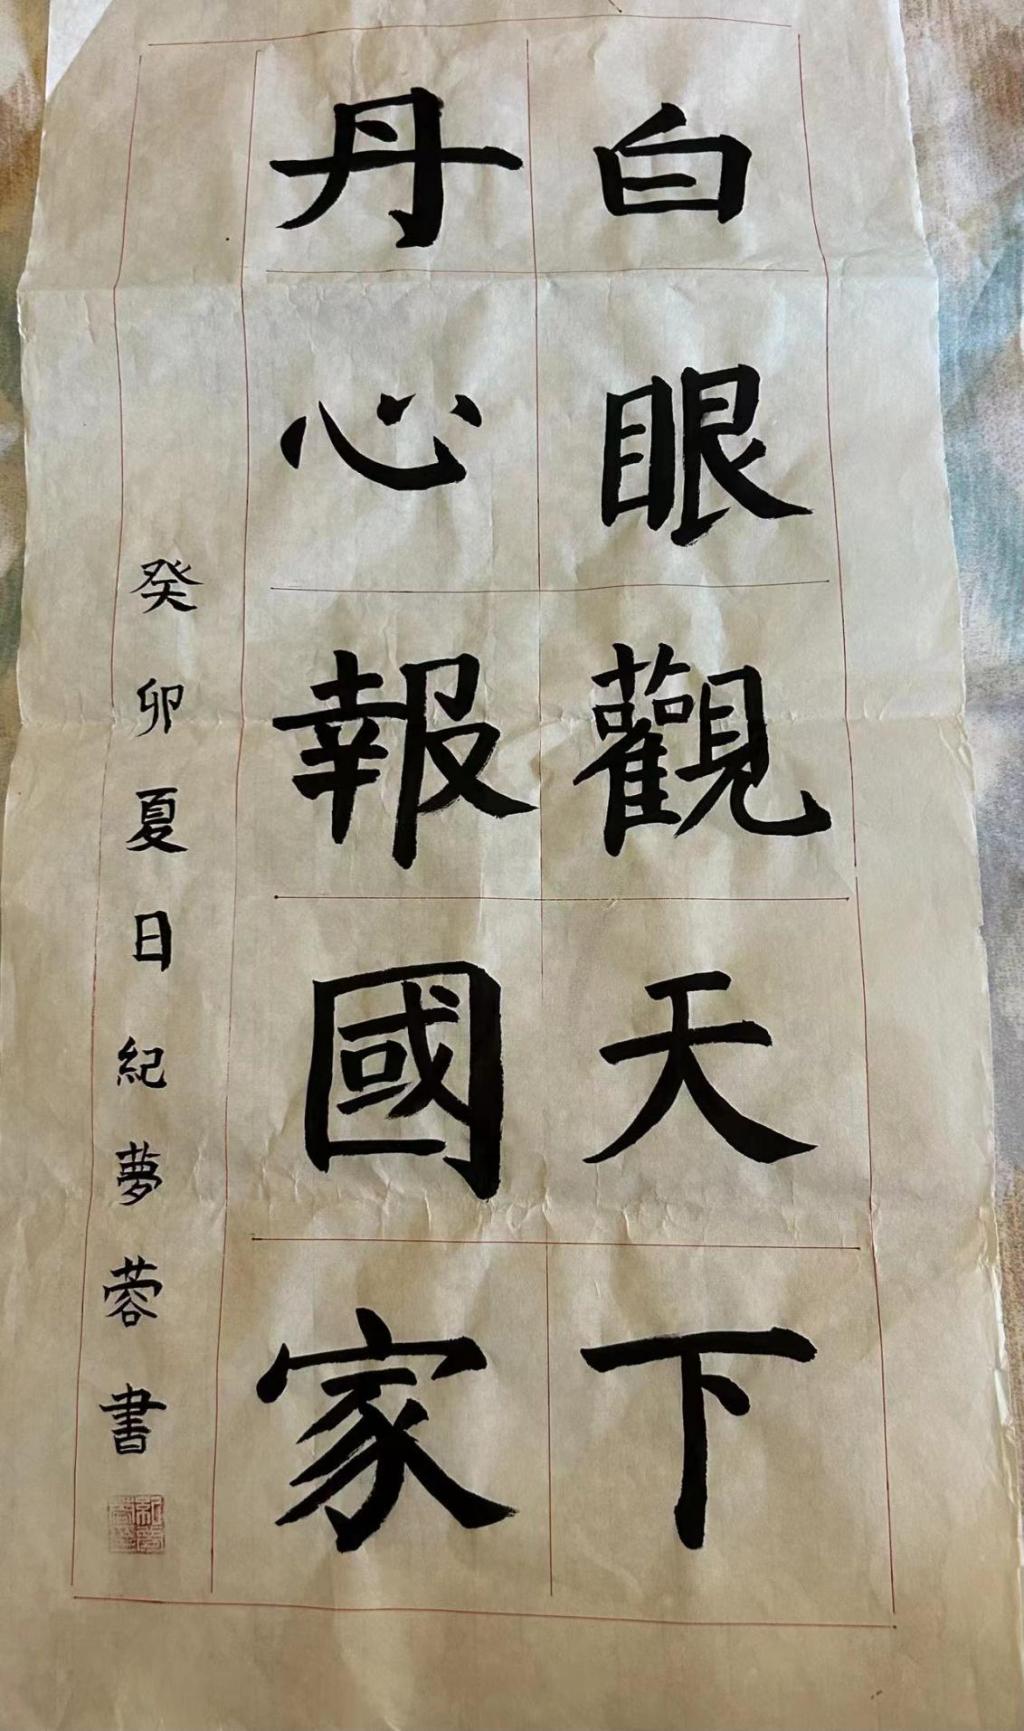 白眼觀天下
丹心報國家
癸卯夏日紀夢蓉書